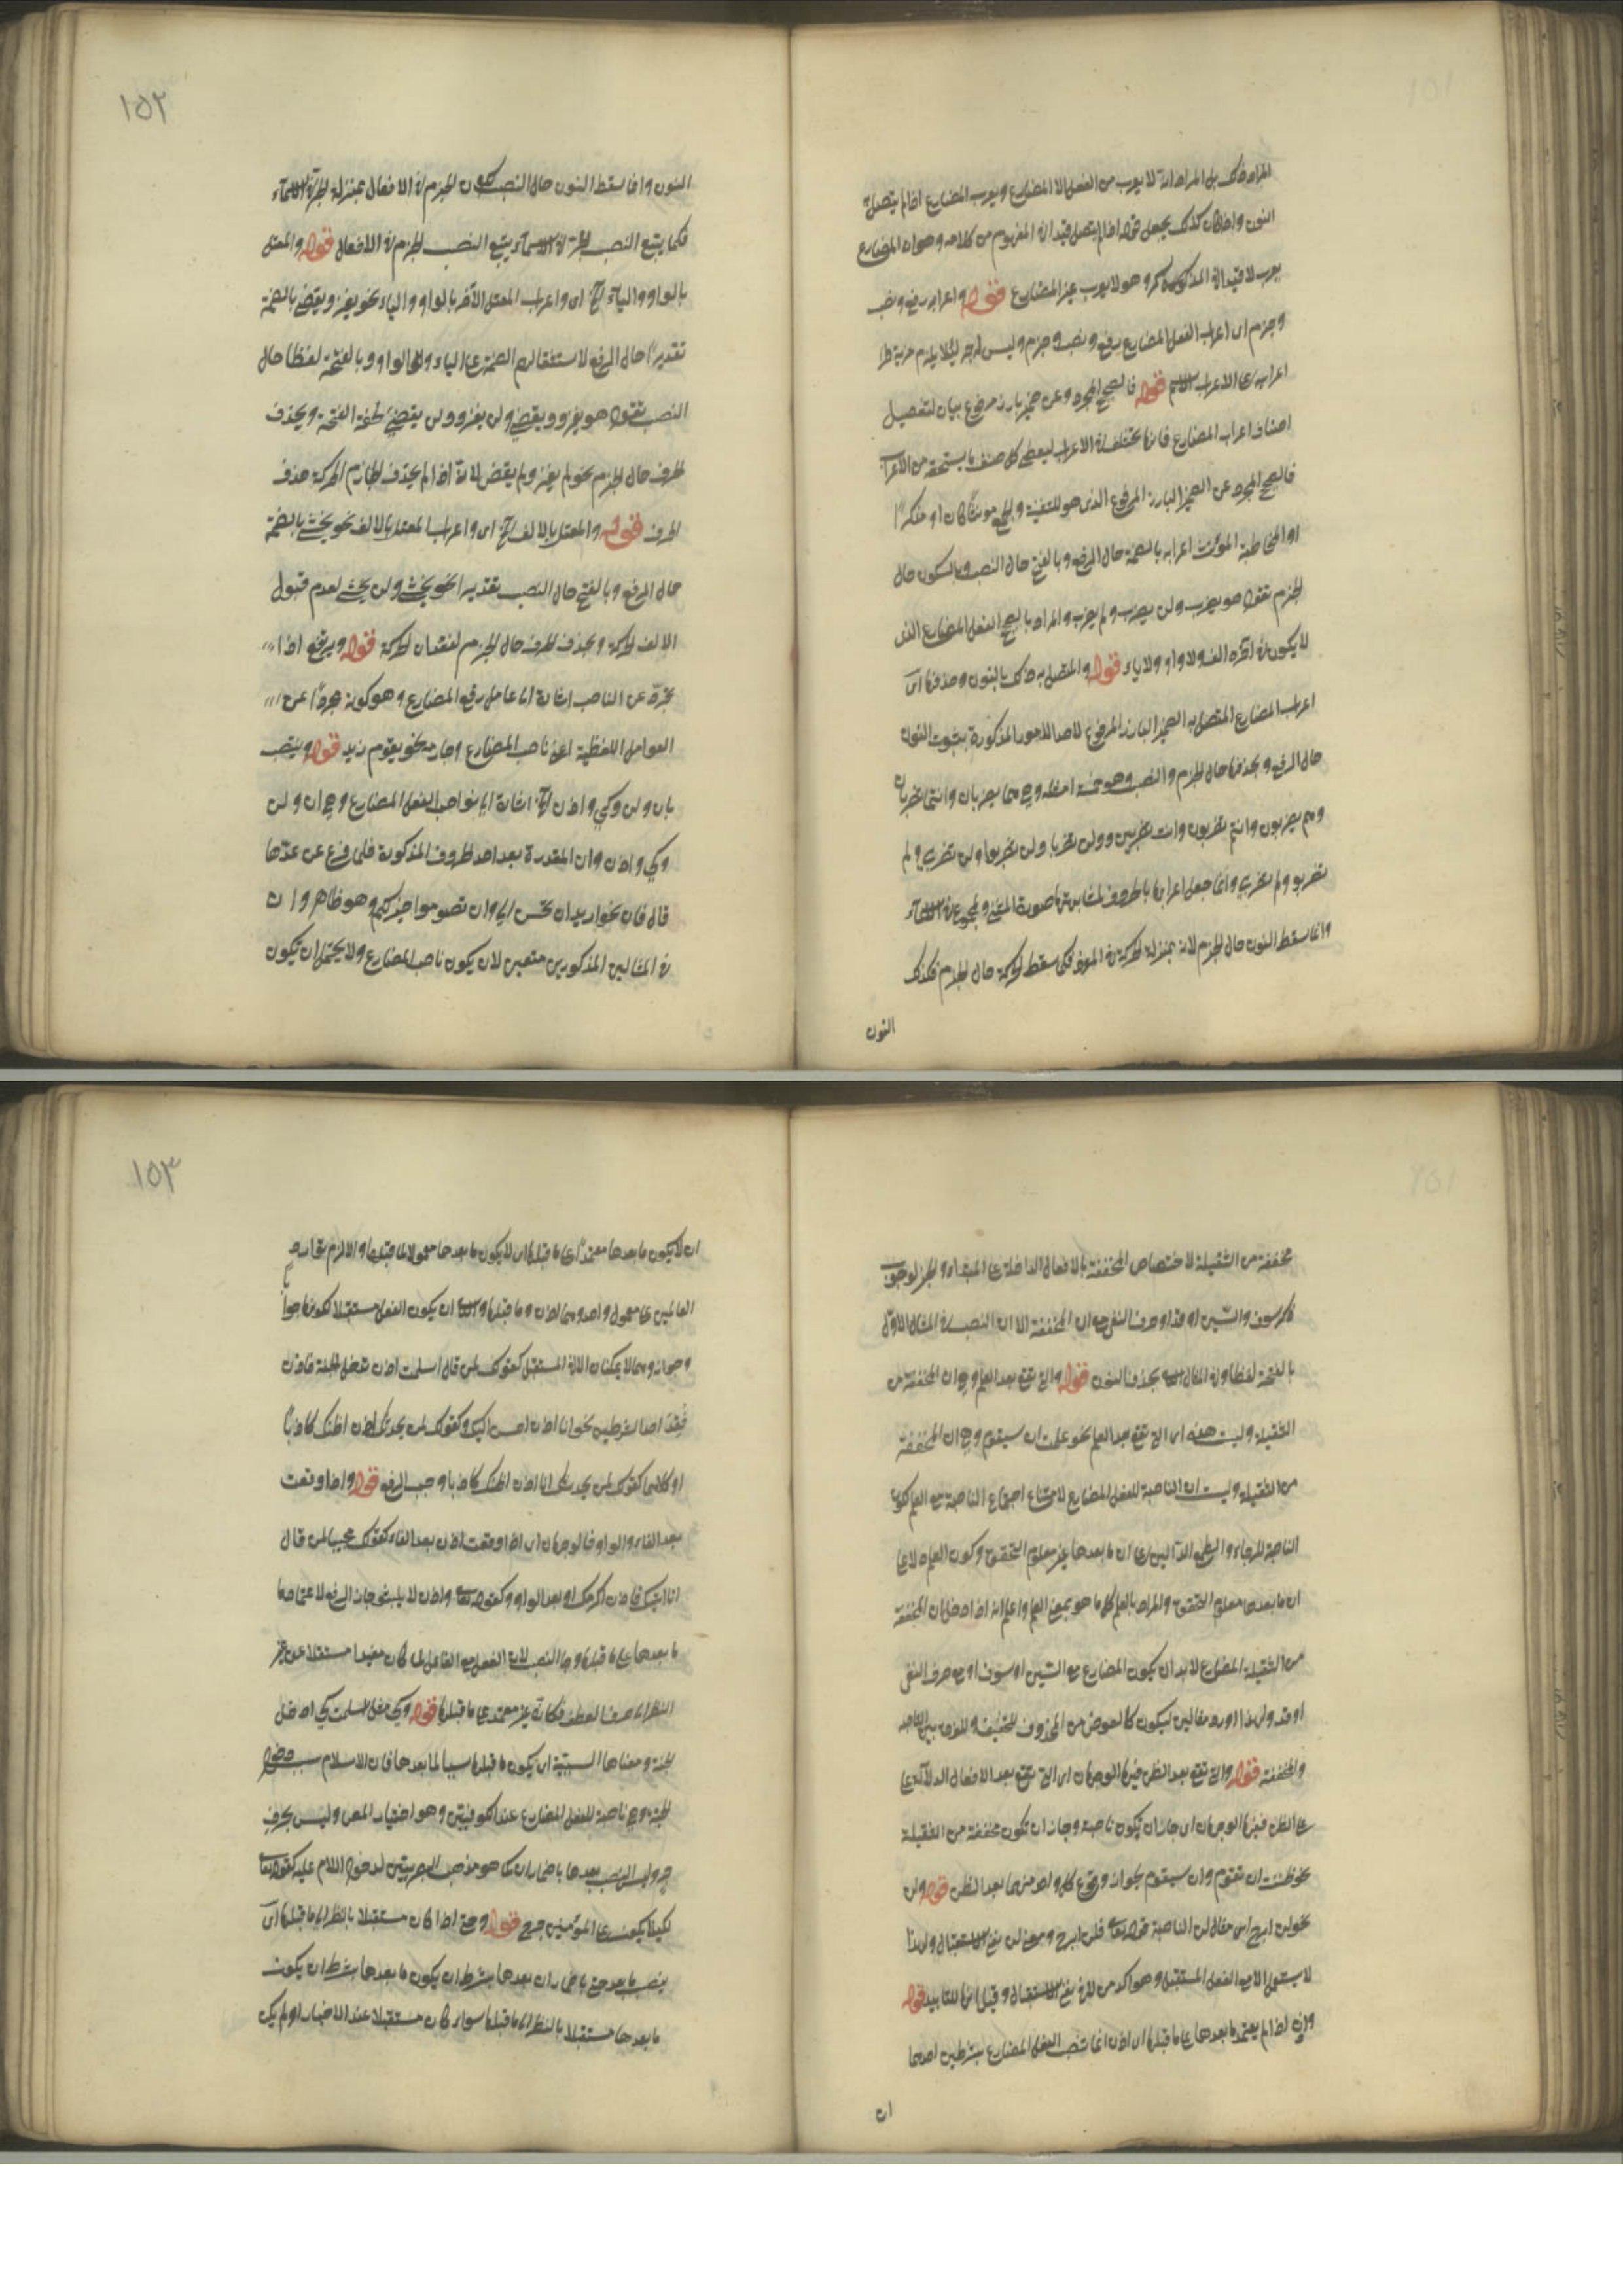 المراد ذلك بل المراد انه لا يعرب من الفعل الا المضارع ويعرب المضارع اذا لم يتصل به
النون واذا كان كذلك يجعل قوله اذا لم يتصل قيد ان المفهوم من كلامه وهو ان المضارع
يعرب لا قيد ان المذكور وهو لا يعرب غير المضارع قوله واعرابه رفع ونصب
وجزم اى اعراب الفعل المضارع رفع ونصب وجزم وليس له جر لئلا يلزم مزية
اعرابه على الاعراب الاسم قوله فالصحيح المجرد عن ضمير بارز مرفوع بيان لتفصيل
اصناف اعراب المضارع فانها مختلفة الاعراب ليعطى كل صنف ما يستحقه من الاعراب
فالصحيح المجرد عن الضمير البارز المرفوع الذى هو للتثنية والجمع مونثا كان او مذكرا
او المخاطبة المؤنث اعرابه بالضمة حال الرفع وبالفتح حال النصب وبالسكون حال
الجزم تقول هو يضرب ولن يضرب ولم يضرب والمراد بالصحيح الفعل المضارع الذى
لا يكون فى آخره الف ولا واو ولا ياء قوله والمتصل به ذلك بالنون وحذفها اى
اعراب المضارع المتصل به الضمير البارز المرفوع لاحد الامور المذكورة بثبوت النون
حال الرفع وبحذفها حال الجزم والنصب وهو خمسة امثلة وهى هما يضربان وانتما تضربان
وهم يضربون وانتم تضربون وانت تضربين ولن تضربا ولن تضربوا ولن تضربى ولم
تضربوا ولم تضربى وانما جعل اعرابها بالحروف لمشابهتها صورة المثنى والمجموع فى الاسماء
وانما سقط النون حال الجزم لانه بمنزلة الحركة فى المفرد فكما سقط الحركة حال الجزم فكذلك
النون
١٥٢
النون وانما سقط النون حال النصب لكون الجزم فى الافعال بمنزلة الجر فى الاسماء
فكما يتبع النصب الجر فى الاسماء يتبع النصب الجزم فى الافعال قوله والمعتل
بالواو والياء الخ اى واعراب المعتل الآخر بالواو والياء نحو يغزو ويقضى بالضمة
تقديرا حال الرفع لاستثقالهم الضمة على الياء والواو وبالفتحة لفظا حال
النصب تقول هو يغزو ويقضى ولن يغزو ولن يقضى لخفة الفتحة ويحذف
الحرف حال الجزم نحو لم يغز ولم يقض لانه اذا لم يجد الجازم الحركة حذف
الحرف قوله والمعتل بالالف الخ اى واعراب المعتل بالالف نحو يخشى بالضمة
حال الرفع وبالفتح حال النصب تقديرا نحو يخشى ولن يخشى لعدم قبول
الالف الحركة وبحذف الحرف حال الجزم لفقدان الحركة قوله ويرتفع اذا
تجرد عن الناصب اشارة الى عامل رفع المضارع وهو كونه مجردا عن
العوامل اللفظية اعنى ناصب المضارع وجازمه نحو يقوم زيد قوله وينتصب
بان ولن وكى واذن الخ اشارة الى نواصب الفعل المضارع وهى ان ولن
وكى واذن وان المقدرة بعد احد الحروف المذكورة فلما فرغ عن عدها
قال فان نحو اريد ان تحسن الى وان تصوموا خير لكم وهو ظاهر وان
فى المثالين المذكورين متعين لان يكون ناصب المضارع ولا يحتمل ان تكون
مخففة من الثقيلة لاختصاص المخففة بالافعال الداخلة على المبتداء والخبر لوجوب
ذكر سوف والسين او قد او حرف النفى مع ان المخففة الا ان النصب فى المثال الاول
بالفتحة لفظا وفى المثال الثانى بحذف النون قوله والتى تقع بعد العلم هى ان المخففة من
الثقيلة وليست هذه اى التى تقع بعد العلم نحو علمت ان سيقوم هى ان المخففة
من الثقيلة وليست ان الناصبة للفعل المضارع لامتناع اجتماع الناصبة مع العلم لكون
الناصبة للرجاء والطمع الدالين على ان ما بعدها غير معلوم التحقق وكون العلم دالا على
ان ما بعدها معلوم التحقق والمراد بالعلم كل ما هو بمعنى العلم واعلم انه اذا دخل ان المخففة
من الثقيلة المضارع لا بد ان يكون المضارع مع السين او سوف او مع حرف النفى
او قد ولهذا اورد مثالين ليكون كالعوض من المحذوف للتخفيف وللفرق بين الناصبة
والمخففة قوله والتى تقع بعد الظن فيها الوجهان اى التى تقع بعد الافعال الدالة على
على الظن ففيها الوجهان اى جاز ان تكون ناصبة وجاز ان تكون مخففة من الثقيلة
نحو ظننت ان تقوم وان سيقوم بجواز وقوع كل واحد منهما بعد الظن قوله ولن
نحو لن ابرح اى مثال لن الناصبة قوله تعالى فلن ابرح ومعنى لن نفى الاستقبال ولهذا
لا يستعمل الا مع الفعل المستقبل وهو آكد من لا فى نفى الاستقبال وقيل انها للتأبيد قوله
واذن اذا لم يعتمد ما بعدها على ما قبلها اى اذن انما تنصب الفعل المضارع بشرطين احدهما
ان
١٥٣
ان لا يكون ما بعدها معتمدا على ما قبلها اى لا يكون ما بعدها معمولا لما قبلها والا لزم توارد
العاملين على معمول واحد وهما اذن وما قبلها والثانى ان يكون الفعل مستقبلا لكونها جوابا
وجزاء وهما لا يمكنان الا فى المستقبل كقولك لمن قال اسلمت اذن تدخل الجنة فاذن
فقد احد الشرطين نحو انا اذن احسن اليك وكقولك لمن يحدثك اذن اظنك كاذبا
او كلاهما كقولك لمن يحدثك انا اذن اظنك كاذبا وجب الرفع قوله واذا وقعت
بعد الفاء والواو فالوجهان اى اذا وقعت اذن بعد الفاء كقولك مجيبا لمن قال
انا آتيك فاذن اكرمك او بعد الواو وكقوله تعالى واذن لا يلبثون جاز الرفع لاعتماد
ما بعدها على ما قبلها وجاز النصب لان الفعل مع الفاعل لما كان مفيدا مستقلا من غير
النظر الى حرف العطف فكانه غير معتمد على ما قبلها قوله وكى مثل اسلمت كى ادخل
الجنة ومعناها السببية اى يكون ما قبلها سببا لما بعدها فان الاسلام سبب دخول
الجنة وهى ناصبة للفعل المضارع عند الكوفيين وهو اختيار المص وليس بحرف
جر وليس النصب بعدها باضمار ان كما هو مذهب البصريين لدخول اللام عليه كقوله تعالى
لكيلا يكون على المؤمنين حرج قوله وحتى اذا كان مستقبلا بالنظر الى ما قبلها اى
ينصب ما بعد حتى باضمار ان بعدها بشرط ان يكون ما بعدها بشرط ان يكون
ما بعدها مستقبلا بالنظر الى ما قبلها سواء كان مستقبلا عند الاخبار او لم يكن